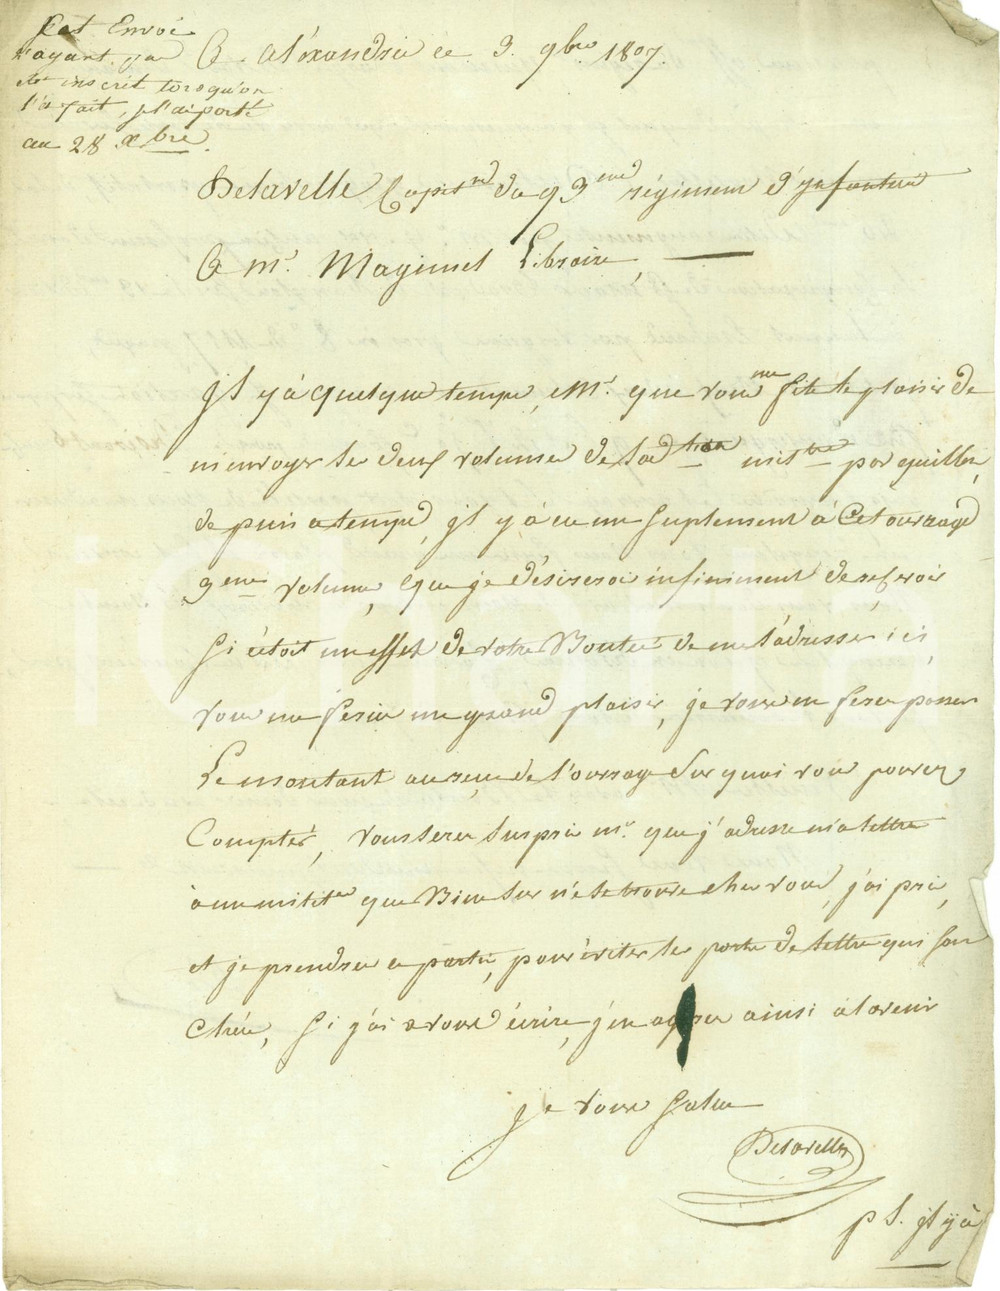 Est Envoié
n'ayant pas
été inscrit lorsqu'on
l'a fait, je l'ai porté
au 28 Xbre.
A aléxandrie ce 3. 9bre 1807.
Delavelle Capit.ne du 93.me régiment d'ynfanterie
A Mr. Magimel Libraire,
Jl y à quelque temps, Mr. que vous me fite le plaisir de
m'envoyer les deux volumes de L'ad.tion mit.re par quillet,
depuis ce temps, jl y à eu un suplement à Cet ouvrage
3eme volume, que je désirerai infiniment de recevoir
Si c'étoit un effet de votre Bonté de me l'adresser ici,
vous me feriez un grand plaisir, je vous en ferai passer
Le montant au reçu de l'ouvrage Sur quoi vous pouvez
Compter, vous serez surpris Mr. que j'adresse ma lettre
à un milit.re que Bien sur ne se trouve chez vous, j'ai pris,
et je prendrai ce parti, pour éviter les ports de lettre qui son
Chère, Si j'ai a vous écrire, j'en agirai ainsi à l'avenir
je vous salue
Delavelle
p S. jl y à
iCharta